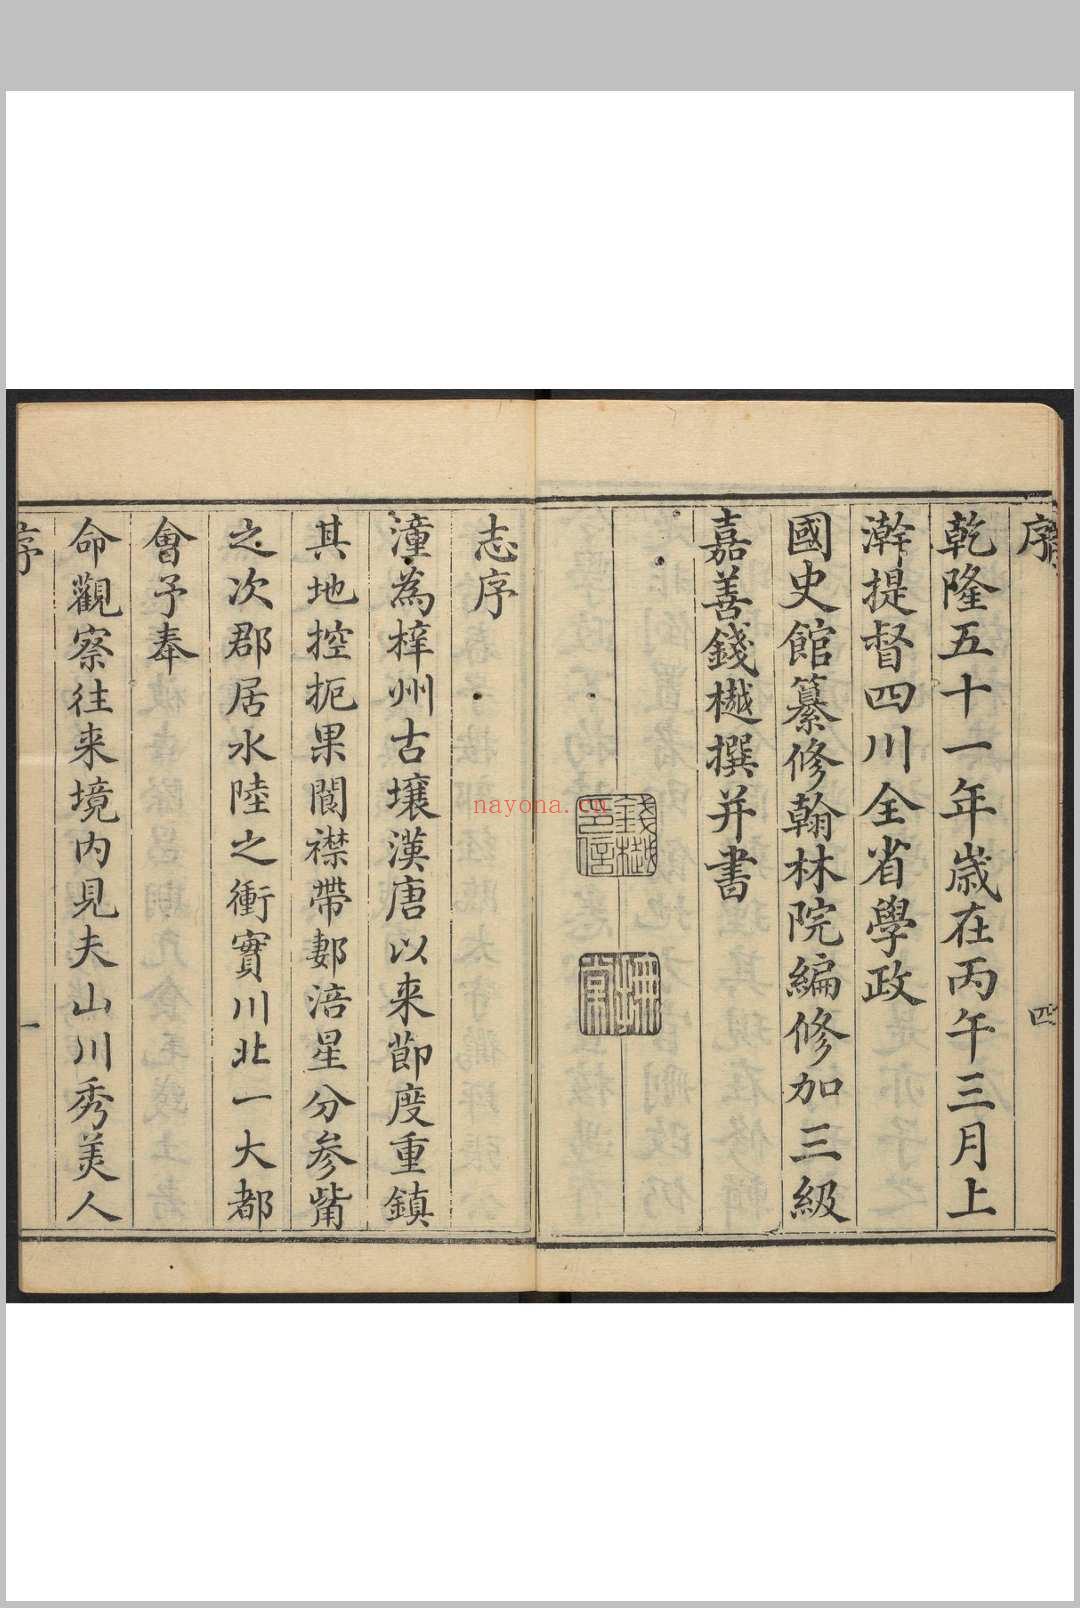 序
四
乾隆五十一年歲在丙午三月上
澣提督四川全省學政
國史館纂修翰林院編修加三級
嘉善錢樾撰并書
錢樾
邑信
nayona.cn
志序
潼為梓州古壤漢唐以来節度重鎮
其地控扼果閬襟帶郪涪星分參觜
之次郡居水陸之衝實川北一大都
會予奉
命觀察往来境内見夫山川秀美人
序
一